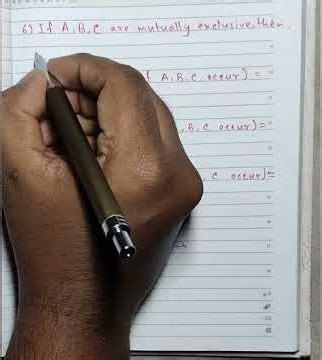 6) If A, B, C are mutually exclusive, then
A, B, C occur) =
, B, C occur) =
, C occur) =